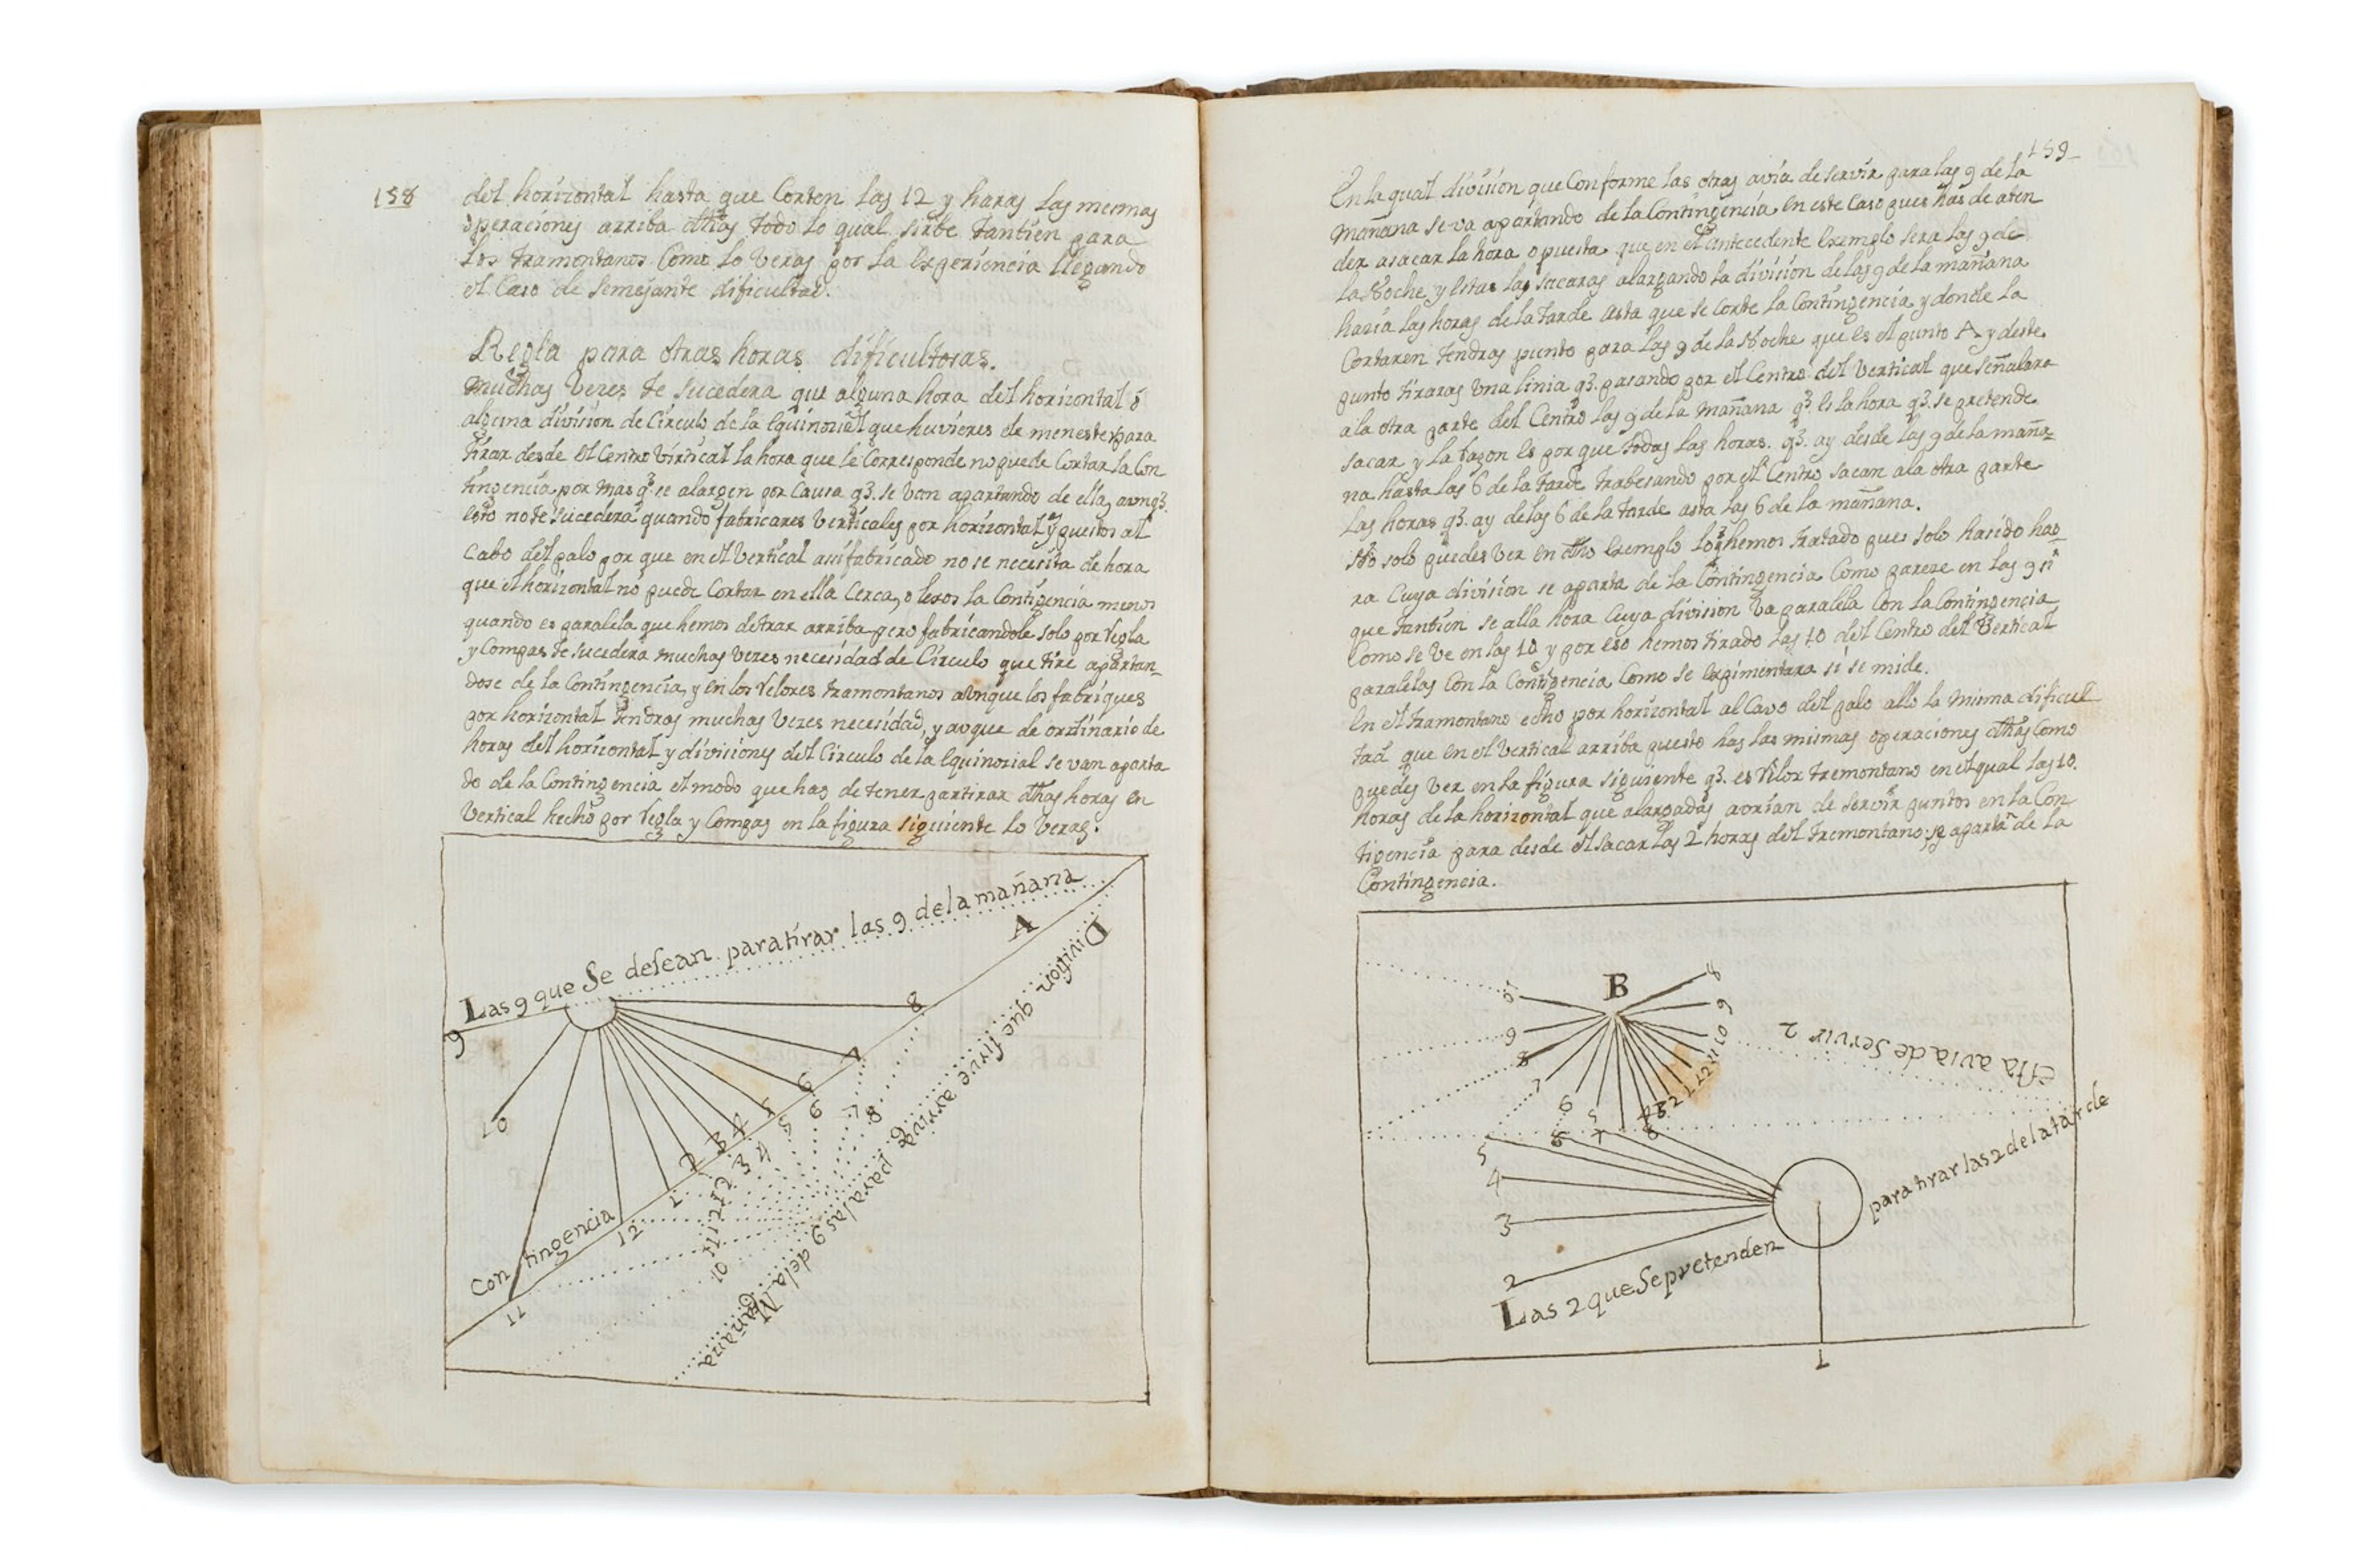 158
del horizontal hasta que Corten las 12 y haras las mermas
operaciones arriba dthas todo lo qual sirbe tantien para
los tramontanos Como lo Veras por la experiencia llegando
el Caso de semejante dificultad.
Regla para otras horas dificultosas.
muchas Vezes te sucedera que alguna hora del horizontal ó
alguna division de Circulo de la Equinozial que huvieres de menester para
tirar desde el Centro Virtical la hora que le Corresponde no puede Cortar la Con
tingencia por mas q3. se alargen por Causa q3. se van apartando de ella, aunq3.
esto no te sucedera quando fabricares Verticales por horizontal y puestos al
Cabo del palo por que en el Vertical assi fabricado no se necesita de hora
que el horizontal no puede Cortar en ella Cerca, o lexos la Contigencia menos
quando es paralela que hemos de trar arriba pero fabricandole solo por regla
y Compas te sucedera muchas Vezes necesidad de Circulo que tire apartan-
dose de la Contingencia, y en los relores tramontanos aunque los fabriques
por horizontal tendras muchas Vezes necesidad, y auque de ordinario de
horas del horizontal y divisiones del Circulo de la Equinozial se van aparta
do de la Contingencia el modo que has de tener partirar dthas horas en
Vertical hecho por regla y Compas en la figura siguiente lo veras.
Las 9 que Se desean para tirar las 9 de la mañana
A
Division que sirve arriva para las 9 de la Mañana
9
10
8
7
6
5
4
3
2
1
12
11
Contingencia
6
5
4
3
2
1
12
11
10
7
8
9
159
En la qual division que Conforme las otras avia de servir para las 9 de la
mañana se va apartando de la Contingencia en este Caso pues has de aten
der a sacar la hora opuesta que en el antecedente Exemplo sera las 9 de
la Noche y estas las sacaras alargando la division de las 9 de la mañana
hazia las horas de la tarde asta que se Corte la Contingencia y donde la
Cortaren tendras punto para las 9 de la Noche que es el punto A y deste
punto tiraras Una linia q3. pasando por el Centro del Vertical que señalara
a la otra parte del Centro las 9 de la mañana q3. es la hora q3. se pretende
sacar y la razon es por que todas las horas. q3. ay desde las 9 de la maña-
na hasta las 6 de la tarde trabesando por el Centro sacan a la otra parte
las horas q3. ay de las 6 de la tarde asta las 6 de la mañana.
No solo puedes ver en dtho Exemplo lo q3 hemos tratado pues solo ha sido ho
ra Cuya division se aparta de la Contingencia Como pareze en las 9 si
que tantien se alla hora Cuya division Va paralela Con la Contingencia
Como se Ve en las 10 y por eso hemos tirado las 10 del Centro del Vertical
paralelas Con la Contigencia Como se expimentara si se mide.
En el tramontano echo por horizontal al Cavo del palo allo la misma dificul
tad que en el Vertical arriba puesto has las mismas operaciones dthas Como
puedes Ver en la figura siguiente q3. es relox tremontano en el qual las 10.
horas de la horizontal que alargadas avrian de servir puntos en la Con
tigencia para desde el sacar las 2 horas del tremontano, se aparta de la
Contingencia.
B
8
9
10
11
12
1
2
3
4
5
6
7
8
9
esta avia de Servir 2
5
6
7
8
5
4
3
2
1
Las 2 que Sepretenden
para tirar las 2 de la tarde